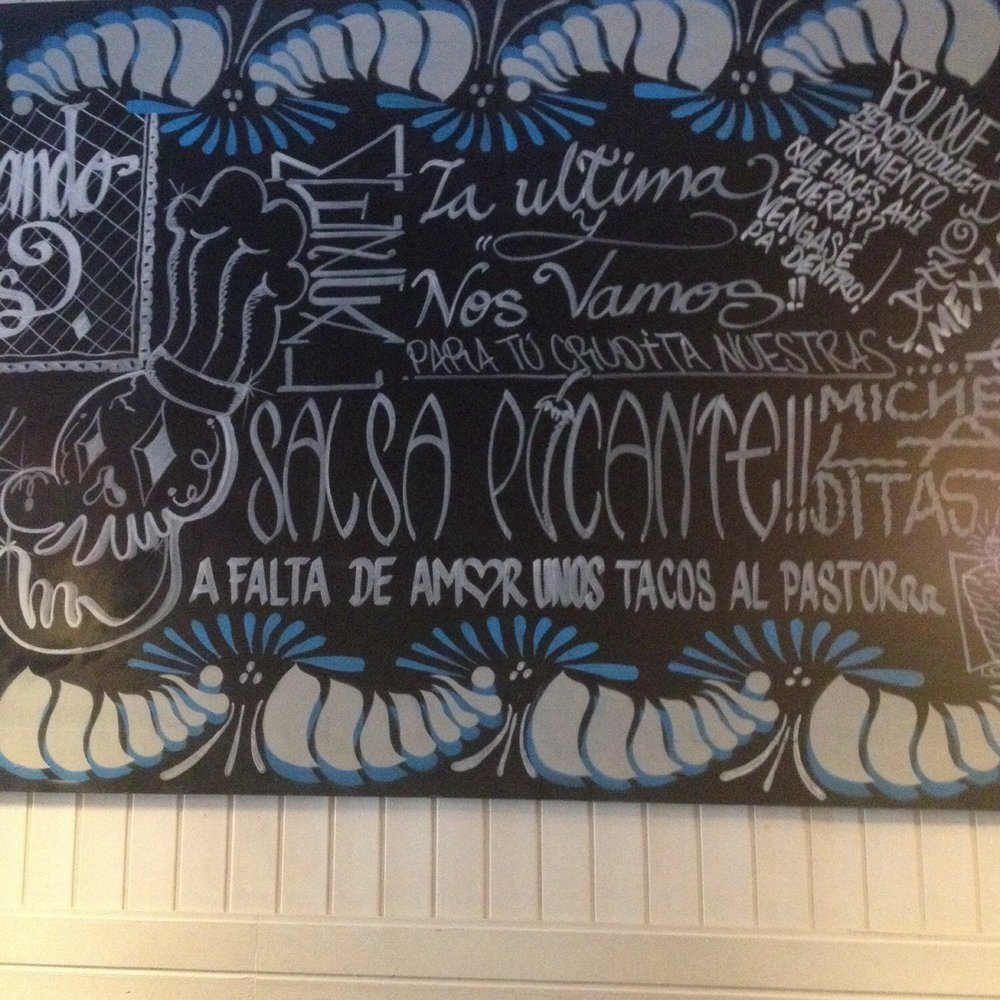 ando
La ultima
y
Nos Vamos!!
PARA TU CRUDITA NUESTRAS
MICHE
LA
DITAS
SALSA PICANTE!!
A FALTA DE AMOR UNOS TACOS AL PASTORRR
PULQUE
BENDITO DULCE
TORMENTO
QUE HACES AHI
FUERA??
VENGASE
PA' DENTRO!